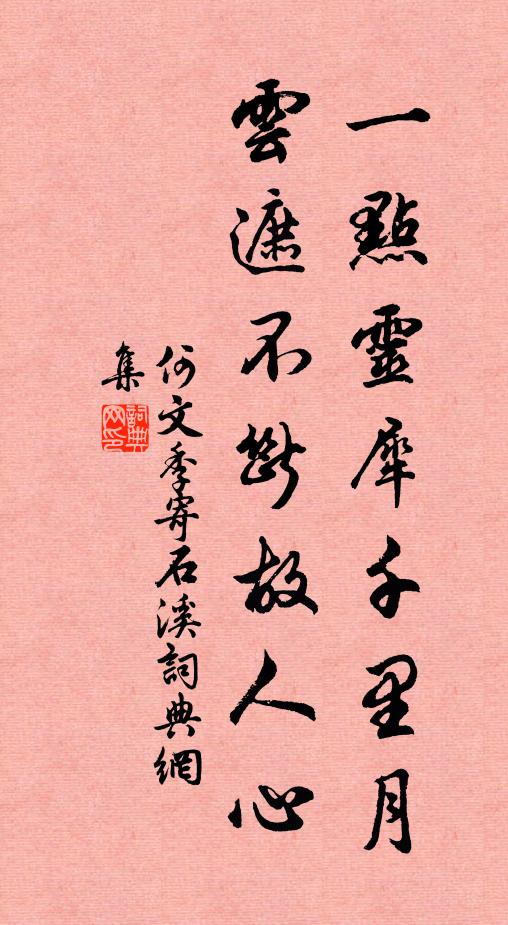 一點靈犀千里月
雲遮不斷故人心
何文季寄石溪詞典網
集
詞典網印